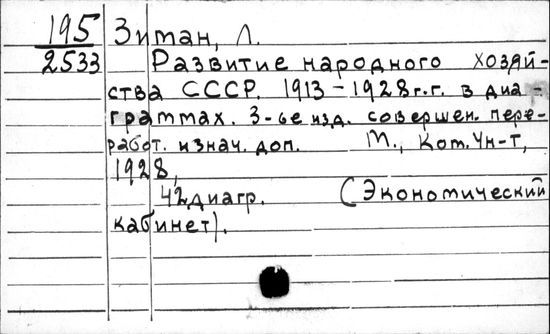 195 Зиман, Л.
2533 Развитие народного хозяй-
ства СССР. 1913-1928г.г. в диа-
граммах. 3-ье изд. совершен. пере-
работ. и знач. доп. М., Ком. Ун-т,
1928,
42 диагр. (Экономический
кабинет).